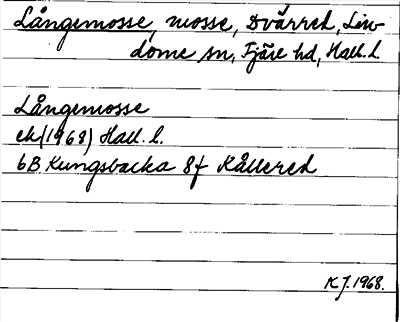 Långemosse, mosse, Dvärred, Lin-
dome sn, Fjäre hd, Hall. l.
Långemosse
ek (1968) Hall. l.
6B. Kungsbacka 8f Kållered
K J. 1968.